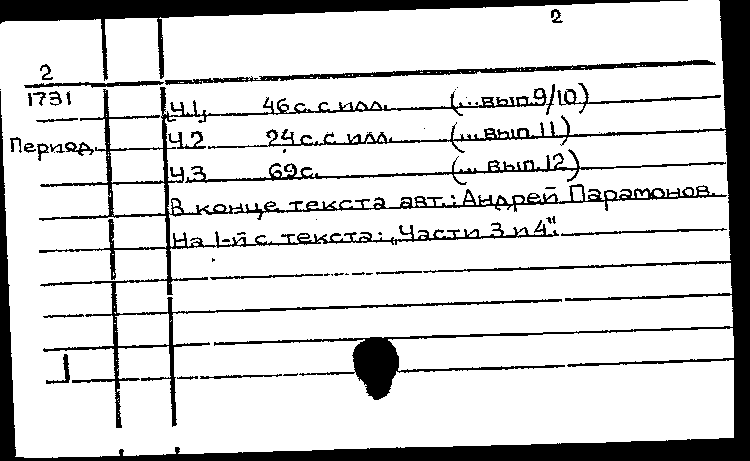 2
2
1731
Ч.1, 46 с. с илл. (...вып.9/10)
Период. Ч.2 24 с. с илл. (...вып.11)
Ч.3 69 с. (... вып.12)
В конце текста авт.: Андрей Парамонов.
На 1-й с. текста: „Части 3 и 4".
1